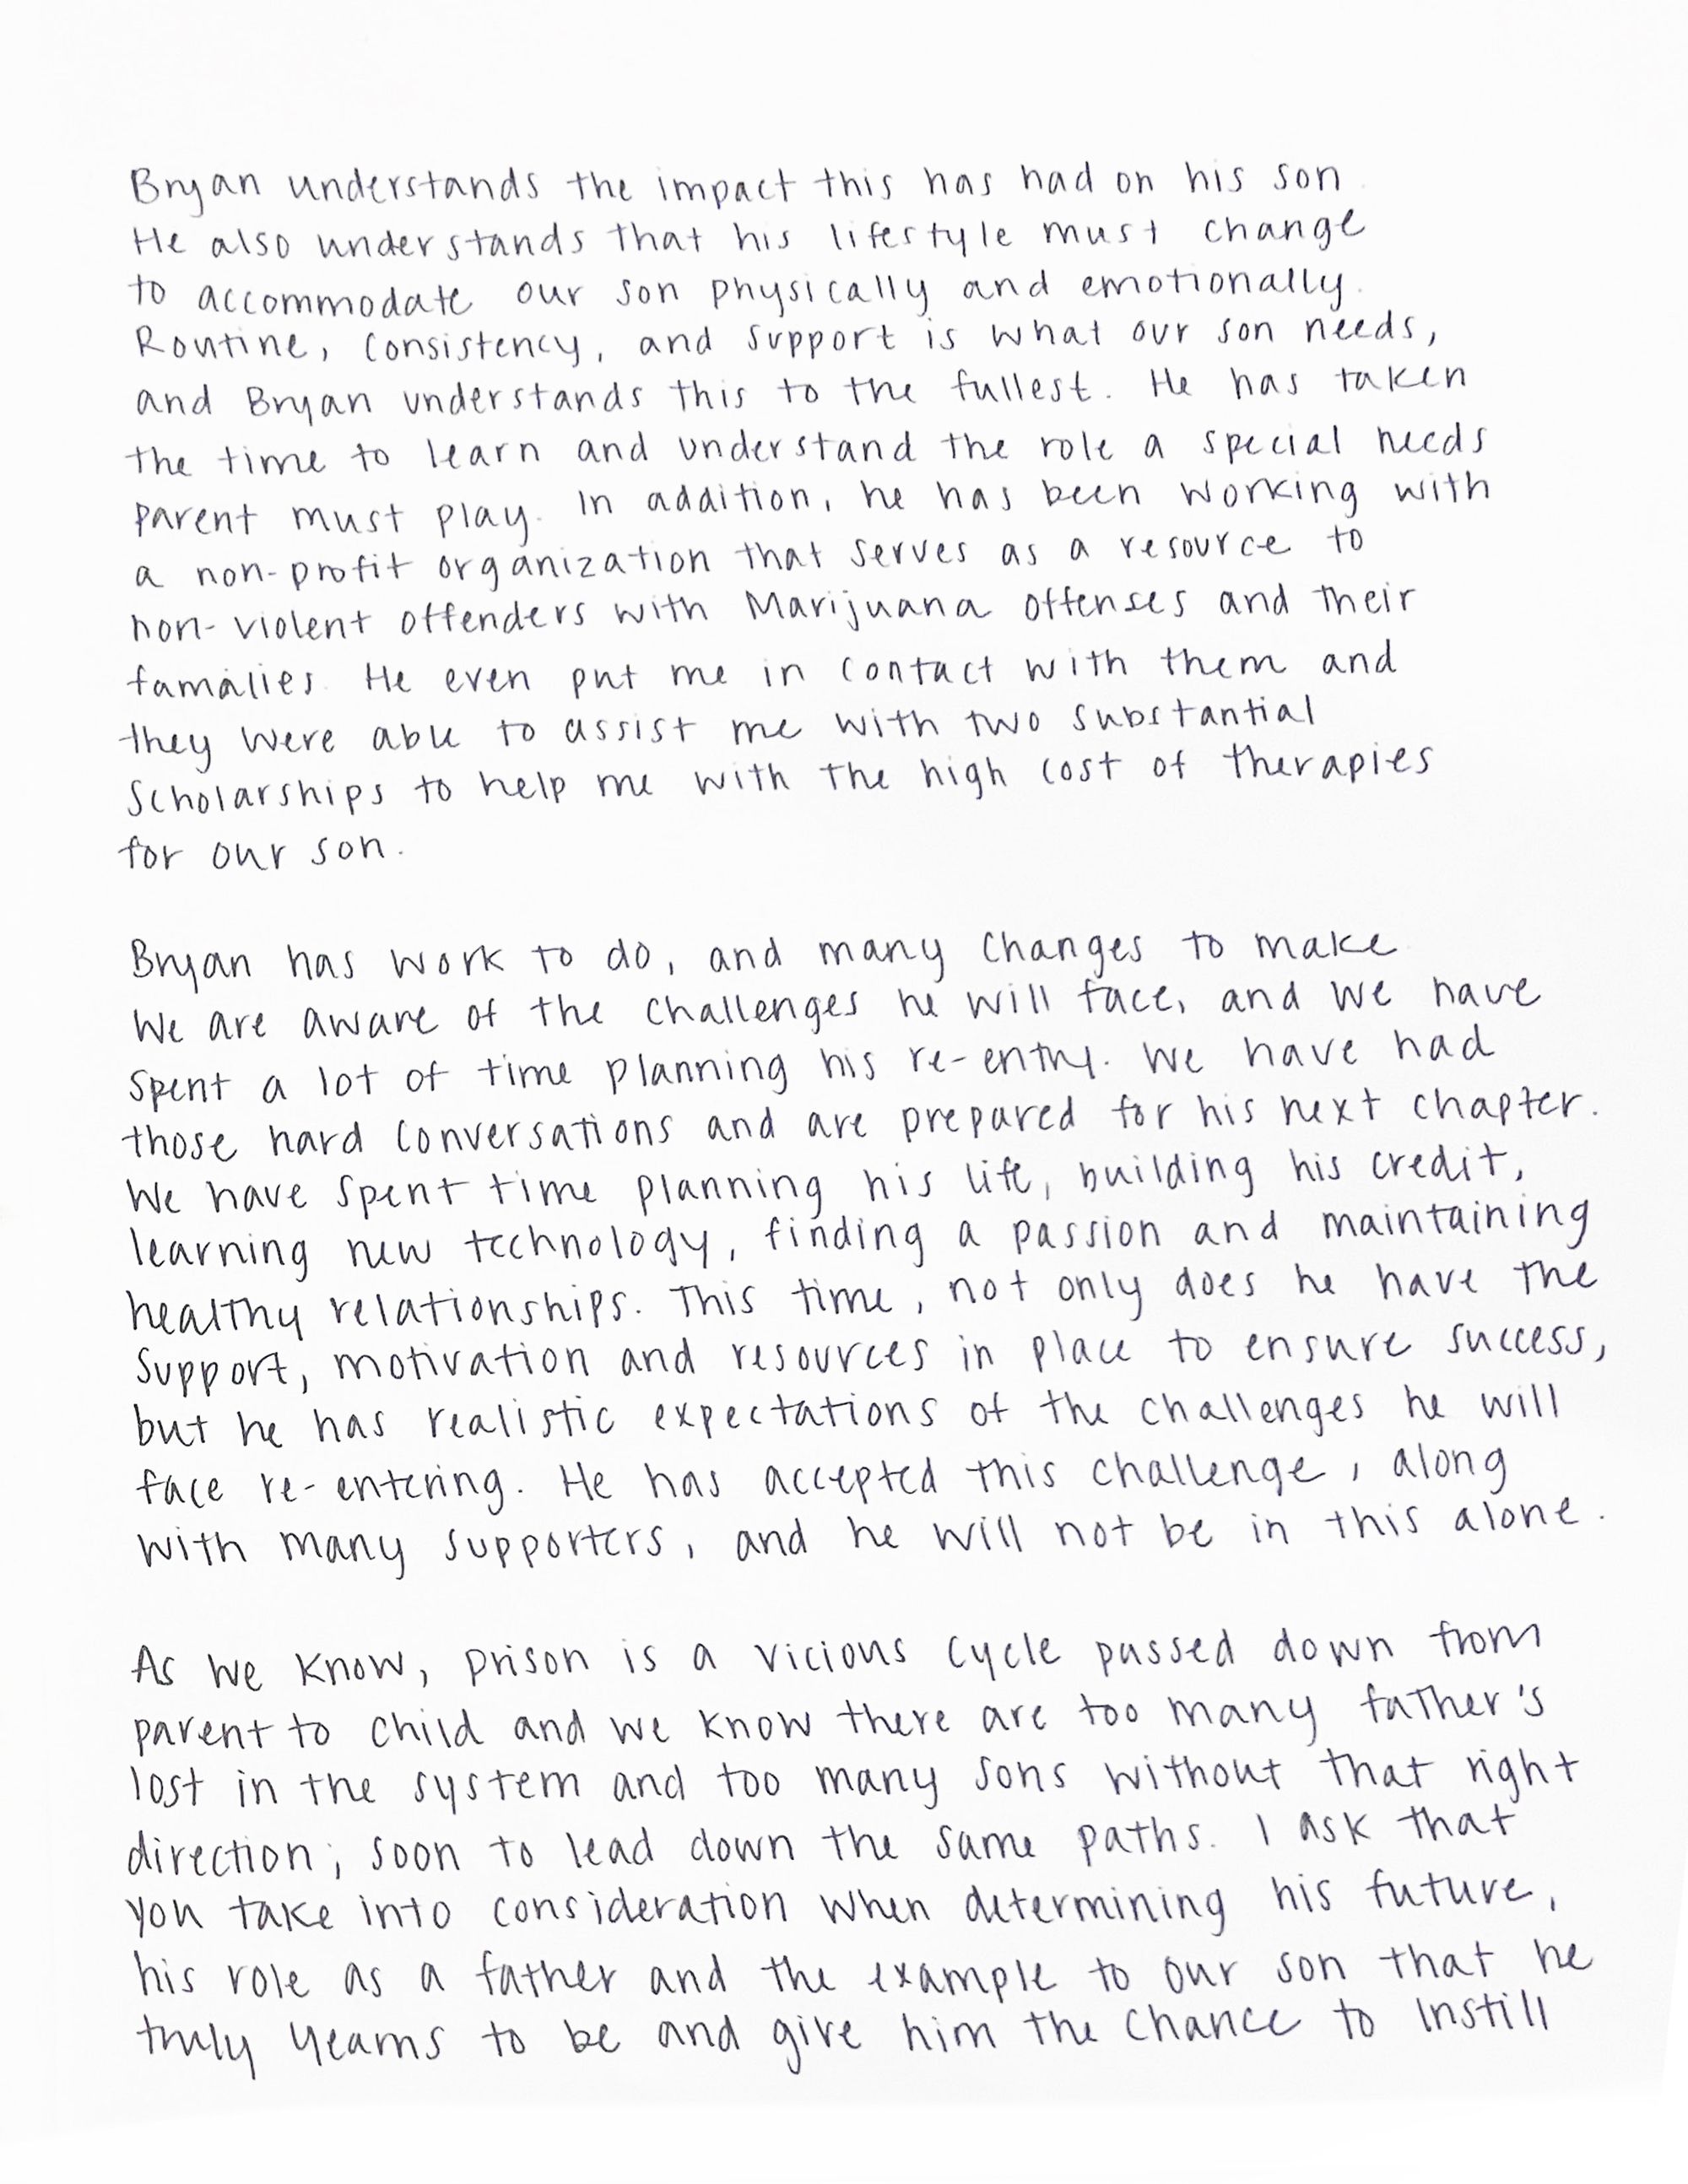 Bryan understands the impact this has had on his son.
He also understands that his lifestyle must change
to accommodate our son physically and emotionally.
Routine, consistency, and support is what our son needs,
and Bryan understands this to the fullest. He has taken
the time to learn and understand the role a special needs
parent must play. In addition, he has been working with
a non-profit organization that serves as a resource to
non-violent offenders with Marijuana offenses and their
famalies. He even put me in contact with them and
they were able to assist me with two substantial
scholarships to help me with the high cost of therapies
for our son.

Bryan has work to do, and many changes to make.
We are aware of the challenges he will face, and we have
spent a lot of time planning his re-entry. We have had
those hard conversations and are prepared for his next chapter.
We have spent time planning his life, building his credit,
learning new technology, finding a passion and maintaining
healthy relationships. This time, not only does he have the
support, motivation and resources in place to ensure success,
but he has realistic expectations of the challenges he will
face re-entering. He has accepted this challenge, along
with many supporters, and he will not be in this alone.

As we know, prison is a vicious cycle passed down from
parent to child and we know there are too many father's
lost in the system and too many sons without that right
direction; soon to lead down the same paths. I ask that
you take into consideration when determining his future,
his role as a father and the example to our son that he
truly yearns to be and give him the chance to instill